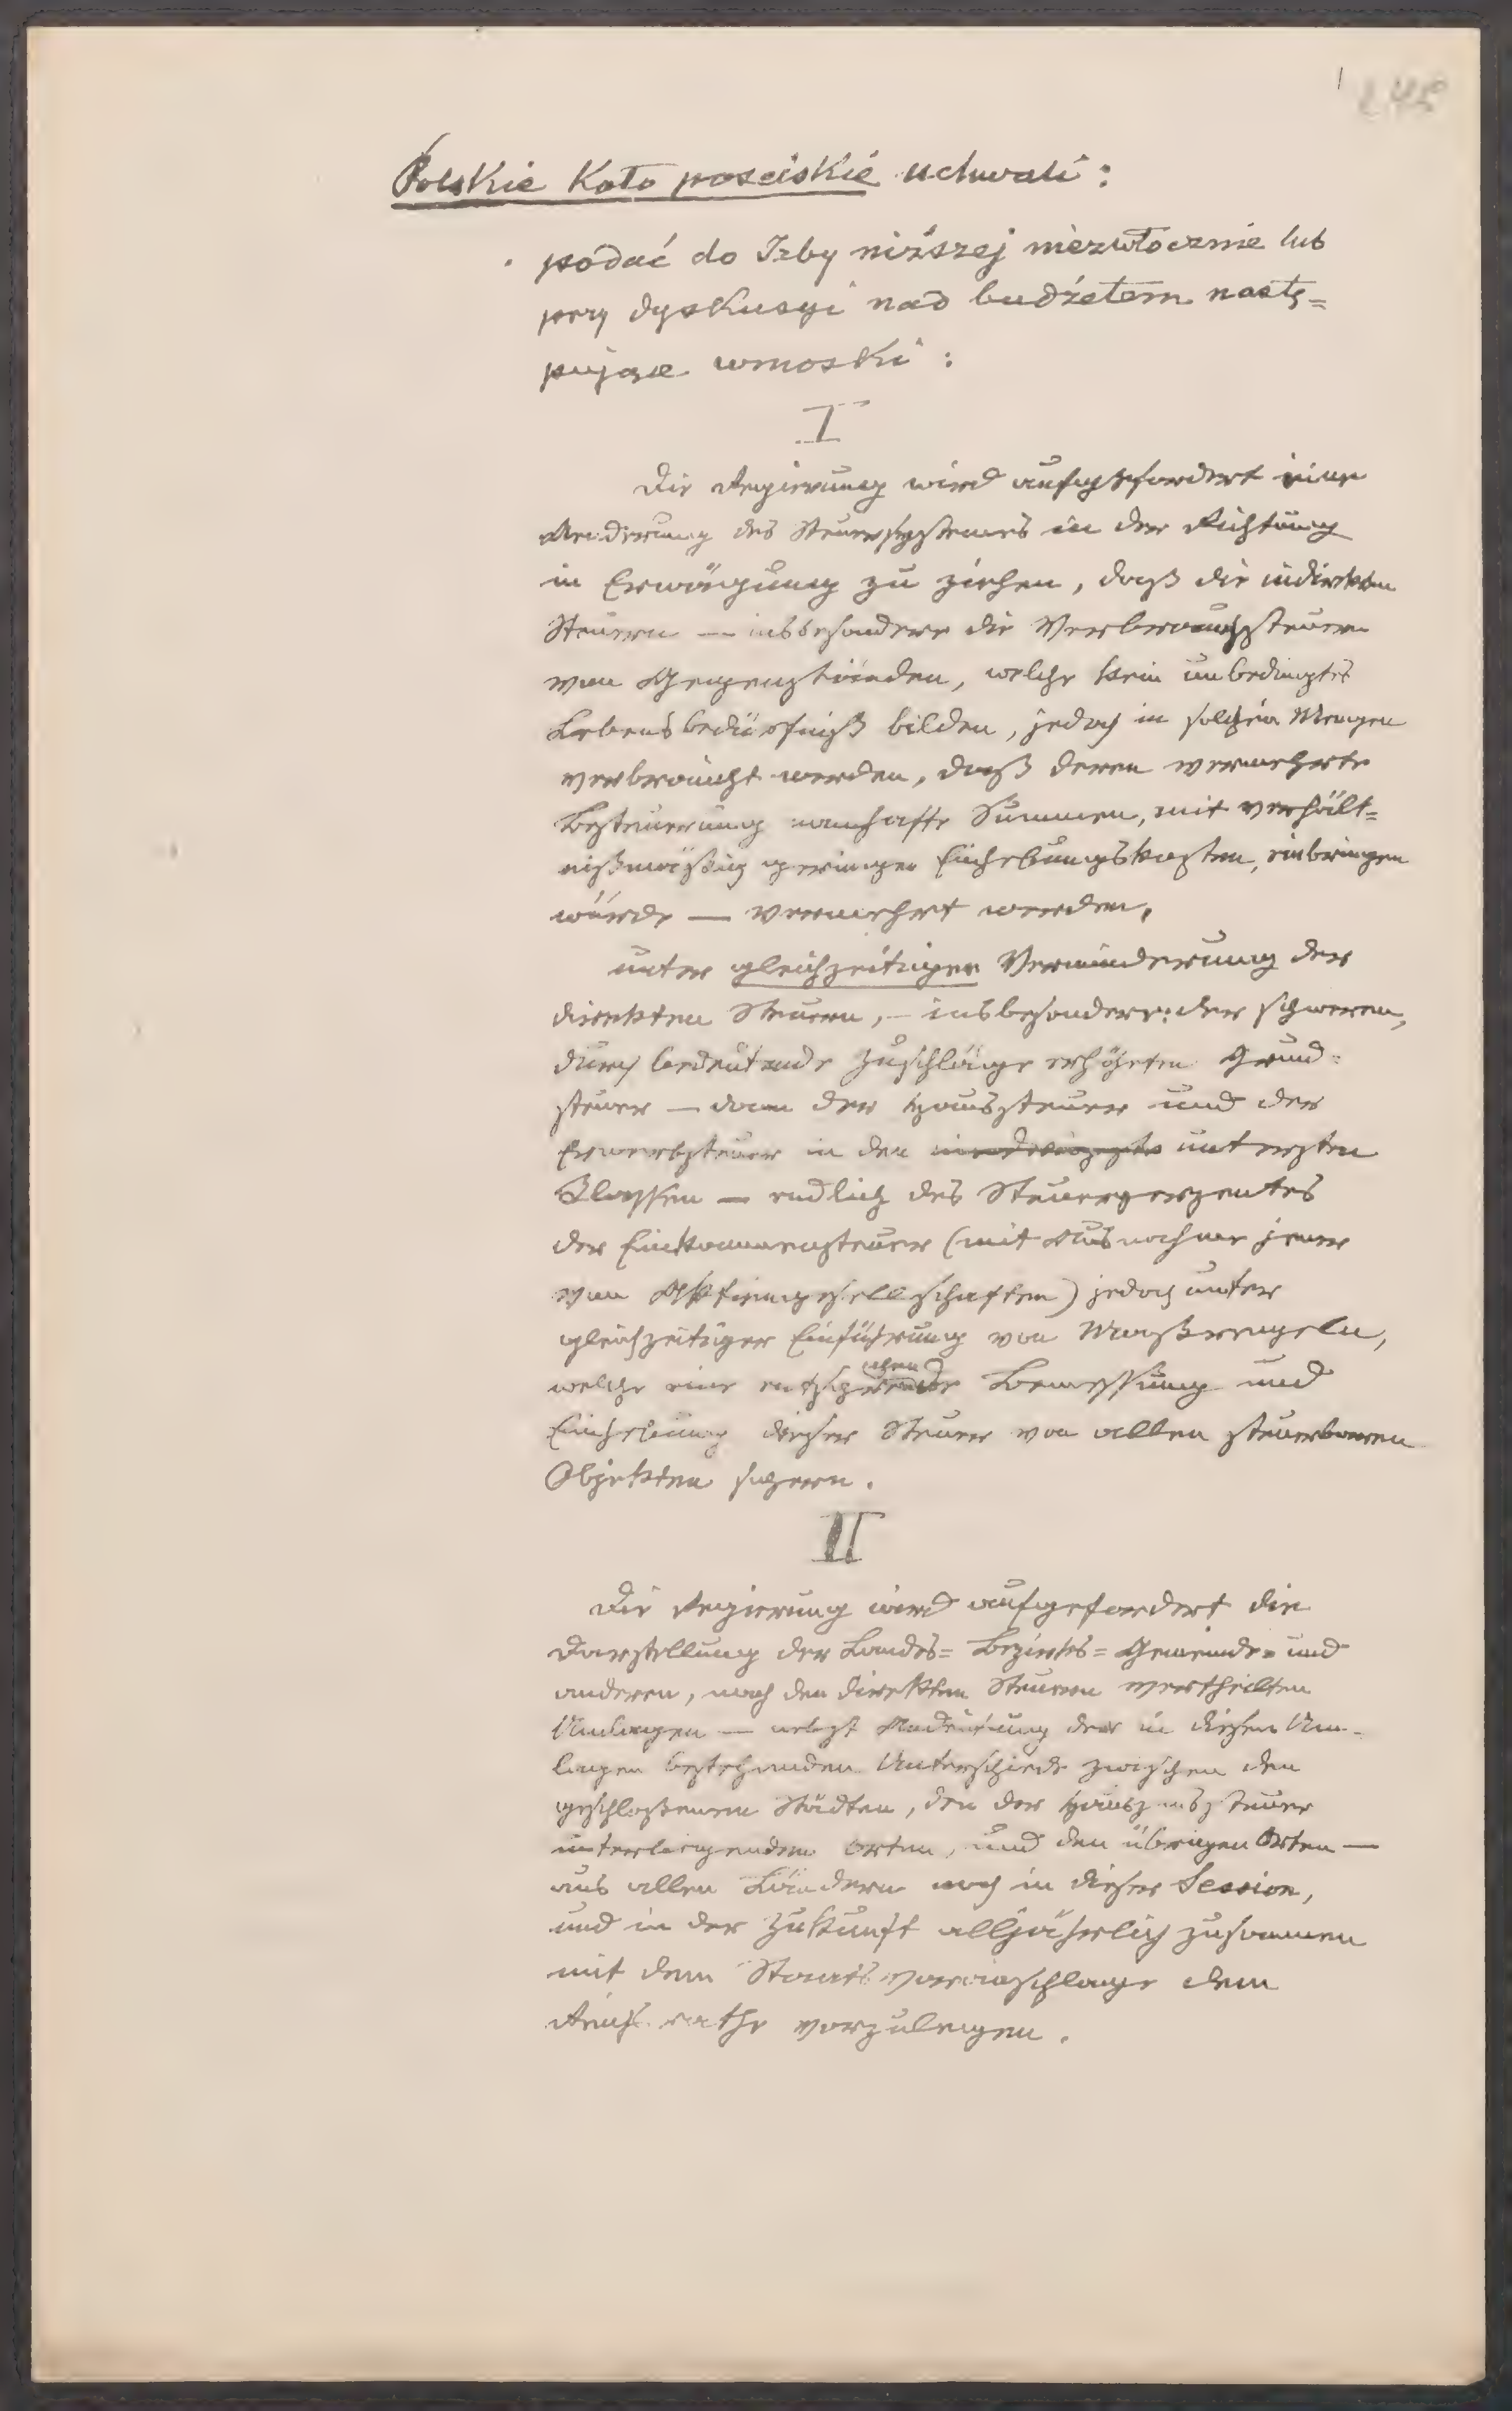 Polskie Koło poselskie uchwali:
podać do Izby niższej niezwłocznie lub
przy dyskusyi nad budżetem nastę=
pujące wnioski:
I
Die Regierung wird aufgefordert eine
Aenderung des Steuersystemes in der Richtung
in Erwägung zu ziehen, daß die indirekten
Steuern — insbesondere die Verbrauchssteuern
von Gegenständen, welche kein unbedingtes
Lebensbedürfniß bilden, jedoch in solchen Mengen
verbraucht werden, daß deren vermehrte
Besteuerung namhafte Summen, mit verhält=
nißmäßig geringen Einhebungskosten, einbringen
würde — vermehrt werden,
unter gleichzeitiger Verminderung der
direkten Steuern, — insbesondere: der schweren,
durch bedeutende Zuschläge erhöhten Grund=
steuer — dann der Haussteuer und der
Erwerbsteuer in den untersten
Klassen — endlich des Steuerperzentes
der Einkommensteuer (mit Ausnahme jener
von Aktiengesellschaften) jedoch unter
gleichzeitiger Einführung von Maßregeln,
welche eine entsprechende Bemessung und
Einhebung dieser Steuer von allen steuerbaren
Objekten sichern.
II
Die Regierung wird aufgefordert die
Darstellung der Landes= Bezirks= Gemeinde= und
anderen, nach den direkten Steuern vertheilten
Umlagen — nebst Andeutung der in diesen Um-
lagen bestehenden Unterschiede zwischen den
geschlossenen Städten, den der Hauszinssteuer
unterliegenden Orten, und den übrigen Orten —
aus allen Ländern noch in dieser Session,
und in der Zukunft alljährlich zusammen
mit dem Staatsvoranschlage dem
Reichsrathe vorzulegen.